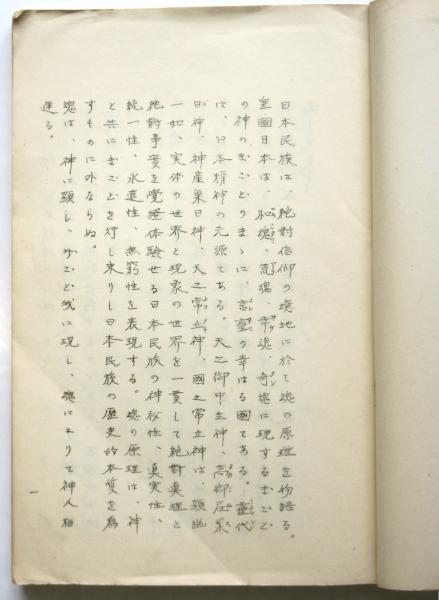 日本民族は、絶對信仰の境地に於て魂の原理を物語る。
皇國日本は、和魂、荒魂、幸魂、奇魂に現するまごと
の神のまごとのまゝに、言靈の幸はる國である。神代
は、日本精神の元源である。天之御中主神、高御産巣
日神、神産巣日神、天之常立神、國之常立神は、顕幽
一如、実体の世界と現象の世界を一貫して絶對眞理と
絶對事實を覺證体驗せる日本民族の神秘性、眞実性、
統一性、永遠性、無窮性を表現する。魂の原理は、神
と共にまごとを行じ来りし日本民族の歴史的本質を為
すものに外ならぬ。
魂は、神に顕し、まごと我に現し、魂によりて神人相
逢る。
一